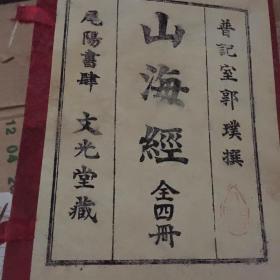 普記室郭璞撰
山海經 全四冊
尾陽書肆 文光堂藏
12 04